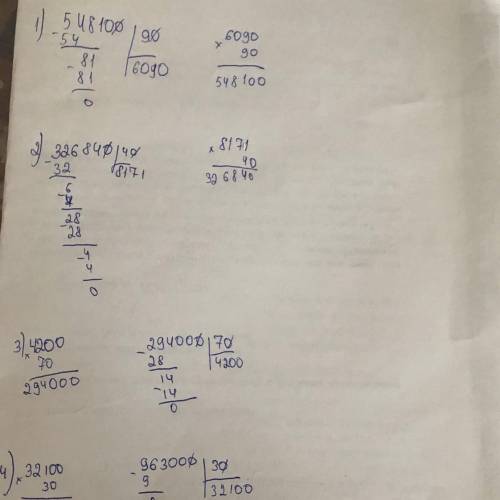 1) - 548100 | 90
54 6090
- 81
81
0
× 6090
90
548100
2) - 326840 | 40
32 8171
- 6
4
- 28
28
- 4
4
0
× 8171
40
326840
3) × 4200
70
294000
- 294000 | 70
28 4200
14
- 14
0
4) × 32100
30
- 963000 | 30
9 32100